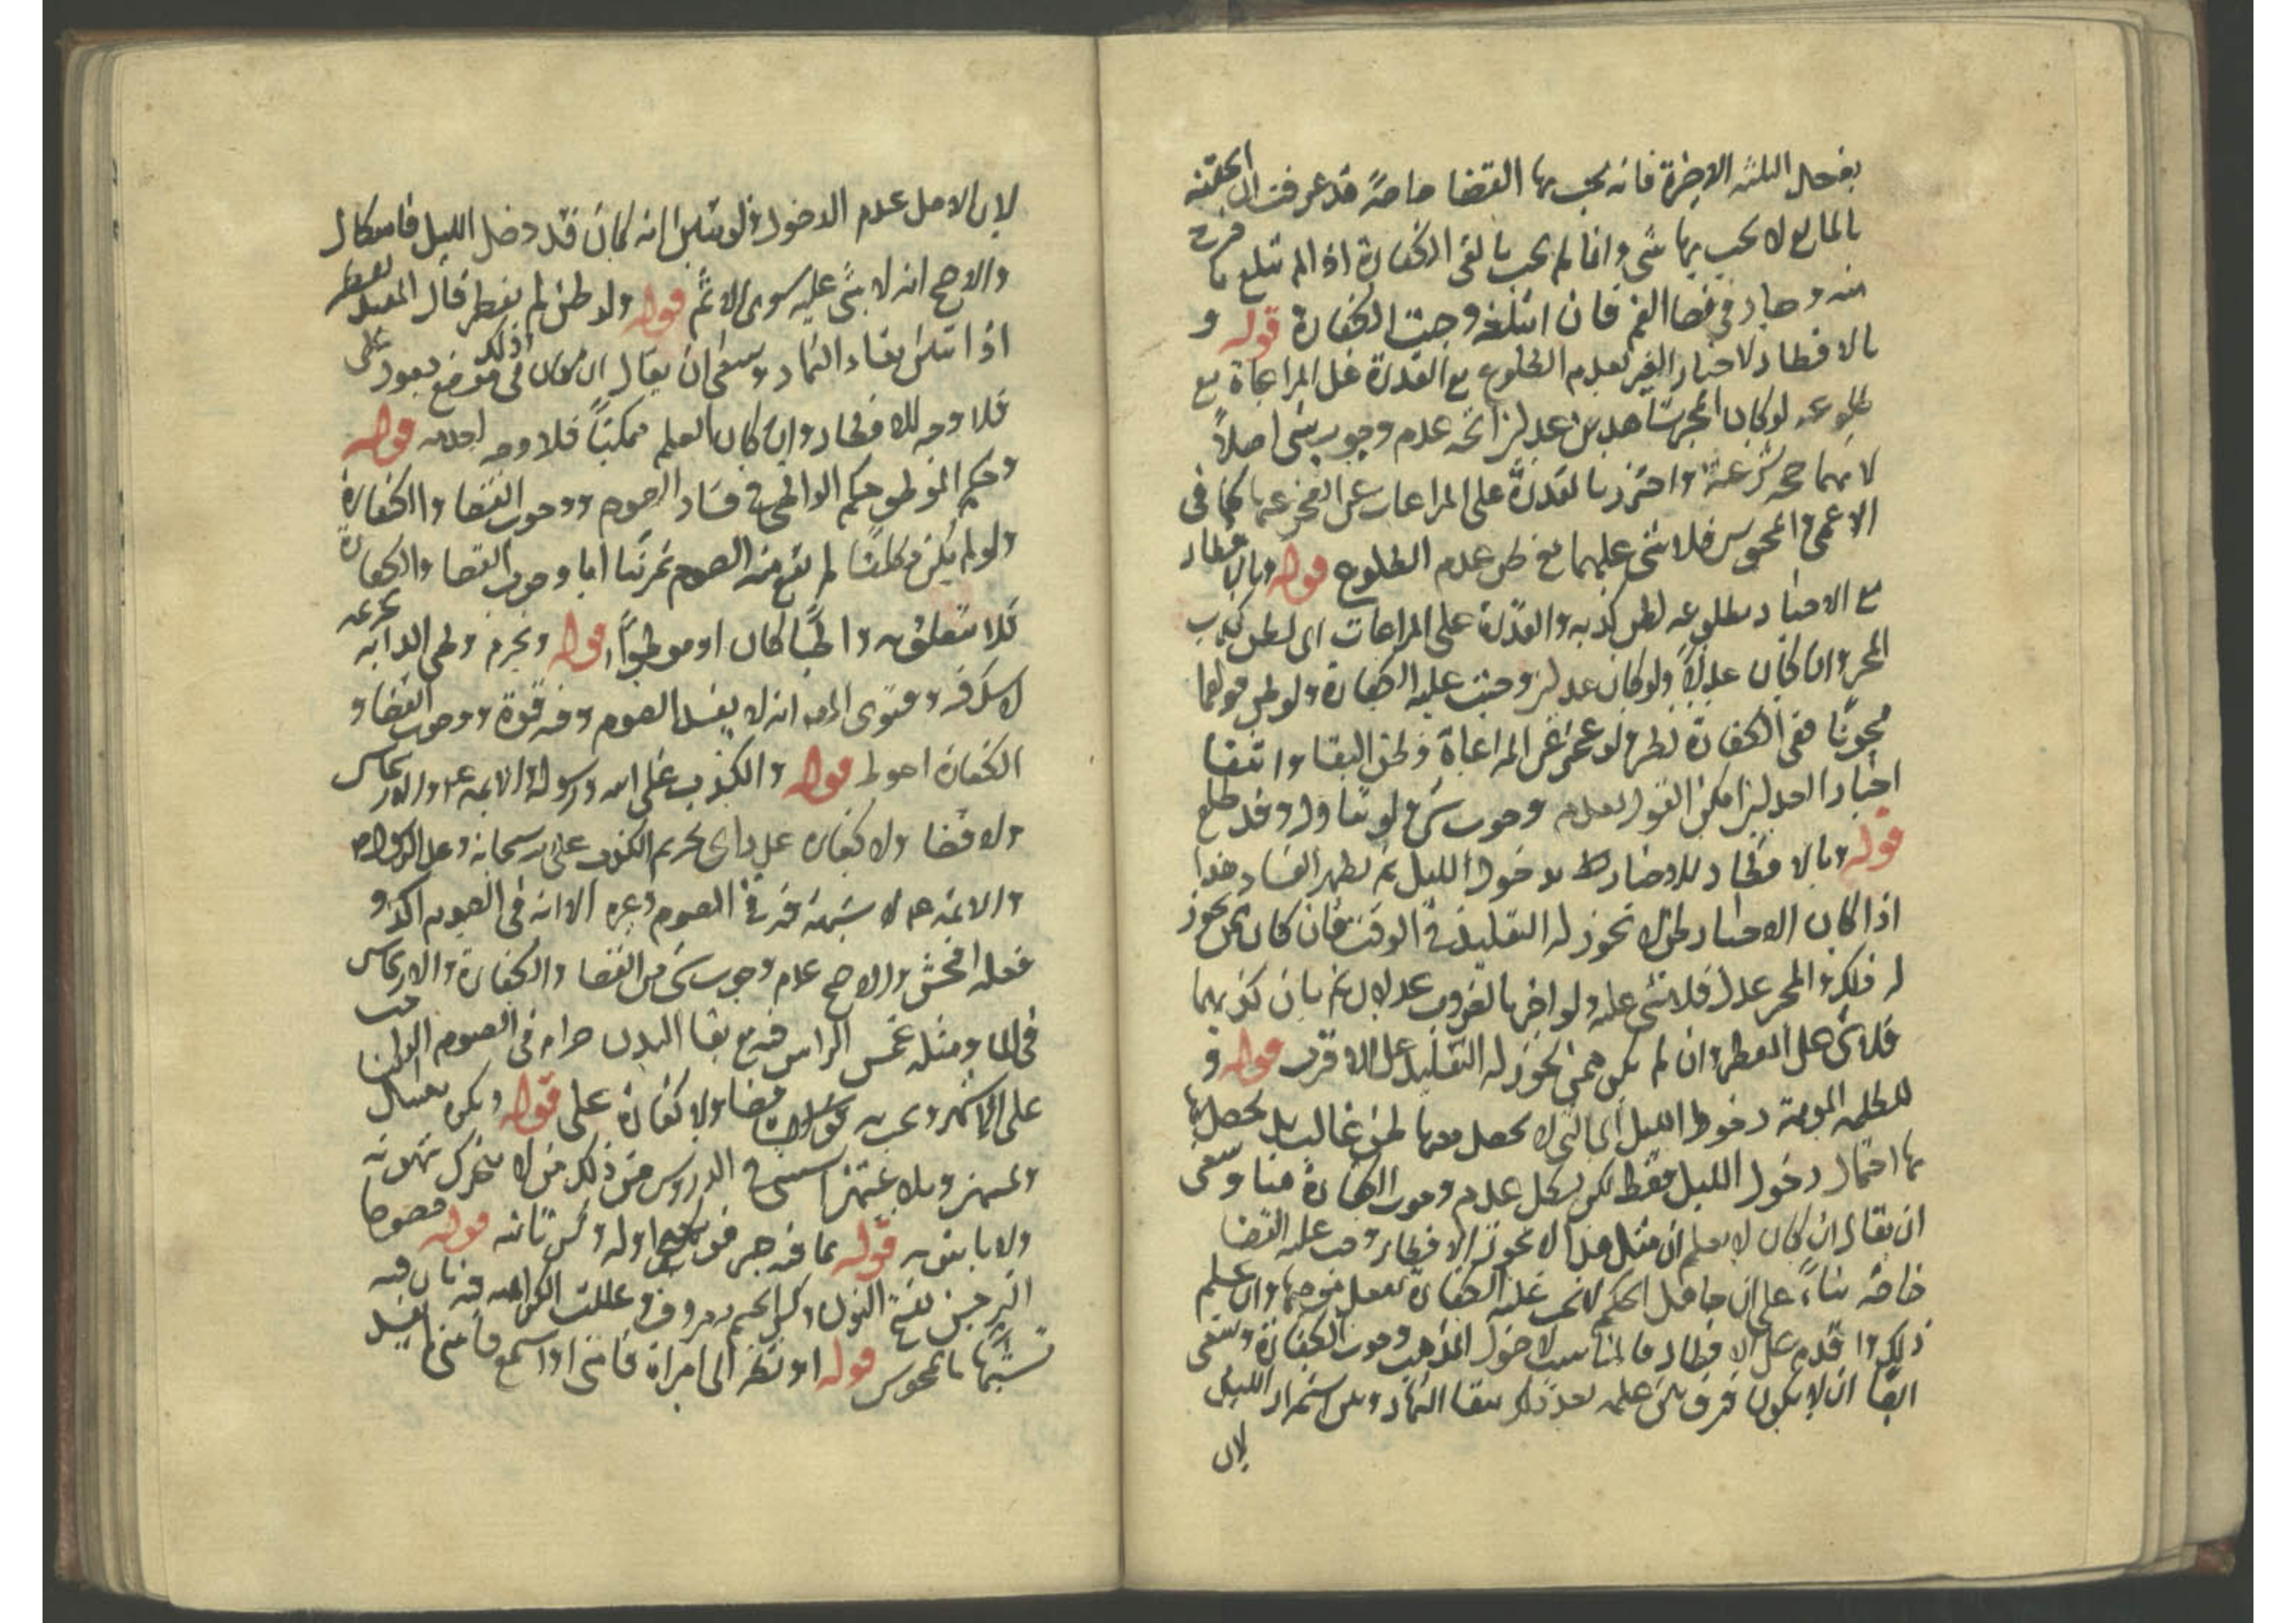 بفعل الثلثة الاخيرة فانه يجب بها القضا خاصة قد عرفت ان الحقنة
بالمايع لا يجب بها شي وانما لم يجب بالقي الكفارة اذا لم يبتلع ما خرج
منه وصار في فضا الفم فان ابتلغه وجبت الكفارة قوله و
بالافطار لاخبار الغير بعدم الطلوع مع القدرة على المراعاة مع
طلوعه لو كان المخبر شاهدين عدلين اتجه عدم وجوب شي اصلاً
لانهما حجة شرعية واحترز بالقدرة على المراعات عن العجز عنها كما في
الاعمى والمحبوس فلا شي عليهما مع ظن عدم الطلوع قوله وبالافطار
مع الاخبار بطلوعه لظن كذبه والقدرة على المراعات اى لظن كذب
المخبر وان كان عدلاً ولو كان عدلين وجبت عليه الكفارة ولو ظن قولهما
مجونًا ففى الكفارة نظر ولو عجز عن المراعاة وظن البقا وانتفا
اخبار العدلين امكن القول بعدم وجوب شي لو تناول وقد طلع
قوله وبالافطار للاخبار بدخول الليل ثم يظهر الفساد هذا
اذا كان الاخبار لمن لا يجوز له التقليد في الوقت فان كان ممن يجوز
له ذلك والمخبر عدل فلا شي عليه ولو اخبر بالغروب عدلان ثم بان كذبهما
فلا شي على المفطر وان لم يكن ممن يجوز له التقليد على الاقرب قوله و
للظلمة الموهمة دخول الليل اى التي لا يحصل معها ظن غالب بل يحصل بها
بها احتمال دخول الليل فقط لكن يشكل عدم وجوب الكفارة هنا وينبغى
ان يقال ان كان لا يعلم ان مثل هذا لا يجوز له الافطار وجب عليه القضا
خاصة بناءً على ان جاهل الحكم لا يجب عليه الكفارة بفعل موجبها وان علم
ذلك واقدم على الافطار فالمناسب لاصول المذهب وجوب الكفارة وينبغى
ايضًا ان لا يكون فرق بين علمه بعد ذلك ببقا النهار وبين استمرار الليل
لان
لان الاصل عدم الدخول ولو تبين انه كان قد دخل الليل فاشكال
والاصح انه لا شي عليه سوى الاثم قوله ولو ظن لم يفطر قال المفيد يفطر
اذا تبين بقاء النهار وينبغى ان يقال ان كان ذلك في موضع يعود على
فلا وجه للافطار وان كان العلم ممكنًا فلا وجه لعدمه قوله
وحكم الموطو حكم الواطى في فساد الصوم ووجوب القضا والكفارة
ولو لم يكن مكلفًا لم يقع منه الصوم تمرينًا اما وجوب القضا والكفارة
فلا تتعلق به واطيًا كان او موطوأً قوله ويحرم وطى الدابة تحريمه
لا شك فيه وفتوى المص انه لا يفسد الصوم وفيه قوة ووجوب القضا و
الكفارة احوط قوله والكذب على الله ورسوله والايمه ع م والارتماس
ولا قضا ولا كفارة على راى تحريم الكذب على الله سبحانه وعلى الرسول ص
والايمة ع م لا شبهة فيه في الصوم وغيره الا انه في الصوم اكد و
فعله افحش والاصح عدم وجوب شي من القضا والكفارة والارتماس
في الما ومثله غمس الراس فيه مع بقا البدن حرام في الصوم الواجب
على الاشهر قضا ولا كفارة على قوله ويكره تقبيل
ولمسهن وملاعبتهن استثنى في الدروس من ذلك من لا يتحرك شهوته
ولا باس به قوله بما فيه صبر بفتح اوله وكسر ثانيه قوله خصوصا
النرجس بفتح النون وكسر الجيم معروف وعللت الكراهية فيه بان فيه
تشبهًا بالمجوس قوله او نظر الى امراة فامنى او استمع فامنى لم يفسد